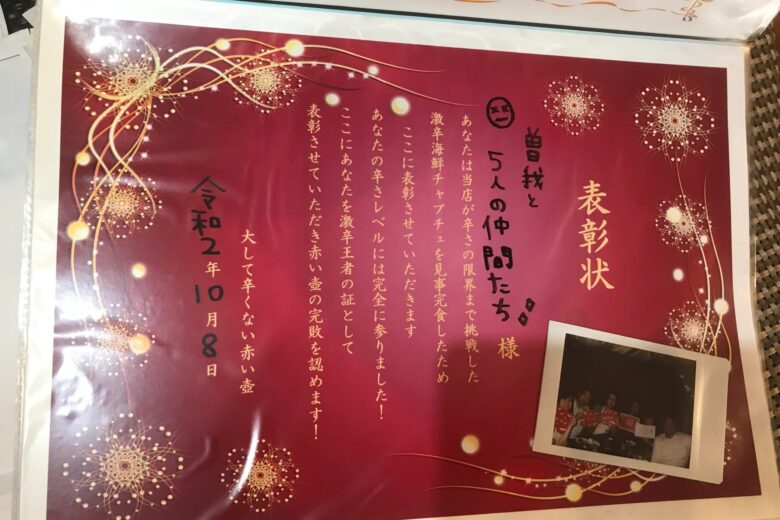 表彰状
曽我と
5人の仲間たち 様
あなたは当店が辛さの限界まで挑戦した
激辛海鮮チャプチェを見事完食したため
ここに表彰させていただきます
あなたの辛さレベルには完全に参りました!
ここにあなたを激辛王者の証として
表彰させていただき赤い壺の完敗を認めます!
大して辛くない赤い壺
令和2年10月8日